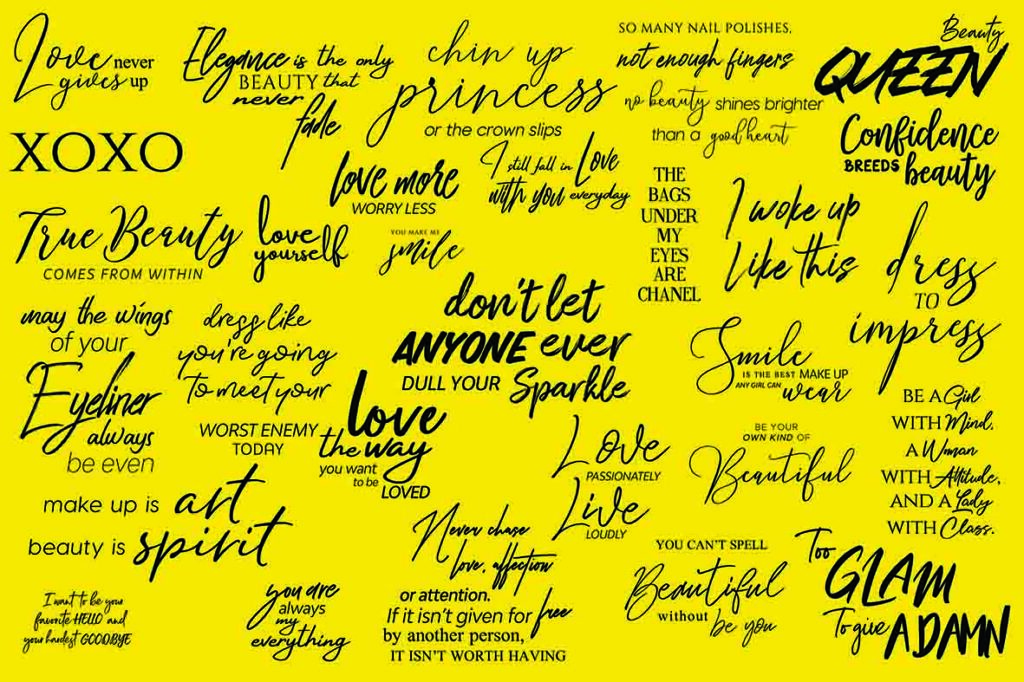 Love never
gives up
Elegance is the only
BEAUTY that
never
fade
chin up
princess
or the crown slips
SO MANY NAIL POLISHES,
not enough fingers
Beauty
QUEEN
no beauty shines brighter
than a good heart
Confidence
BREEDS beauty
XOXO
love more
WORRY LESS
I still fall in Love
with you everyday
THE
BAGS
UNDER
MY
EYES
ARE
CHANEL
I woke up
Like this
dress
TO
impress
True Beauty
COMES FROM WITHIN
love
yourself
YOU MAKE ME
smile
may the wings
of your
Eyeliner
always
be even
dress like
you're going
To meet your
WORST ENEMY
TODAY
don't let
ANYONE ever
DULL YOUR Sparkle
Smile
IS THE BEST MAKE UP
ANY GIRL CAN wear
love
the way
you want
to be LOVED
Love
PASSIONATELY
Live
LOUDLY
BE YOUR
OWN KIND OF
Beautiful
BE A Girl
WITH Mind,
A Woman
WITH Attitude,
AND A Lady
WITH Class.
make up is art
beauty is spirit
Never chase
love, affection
or attention.
If it isn't given for free
by another person,
IT ISN'T WORTH HAVING
YOU CAN'T SPELL
Beautiful
without be you
Too
GLAM
To give A DAMN
I want to be your
favorite HELLO and
your hardest GOODBYE
you are
always
my
everything